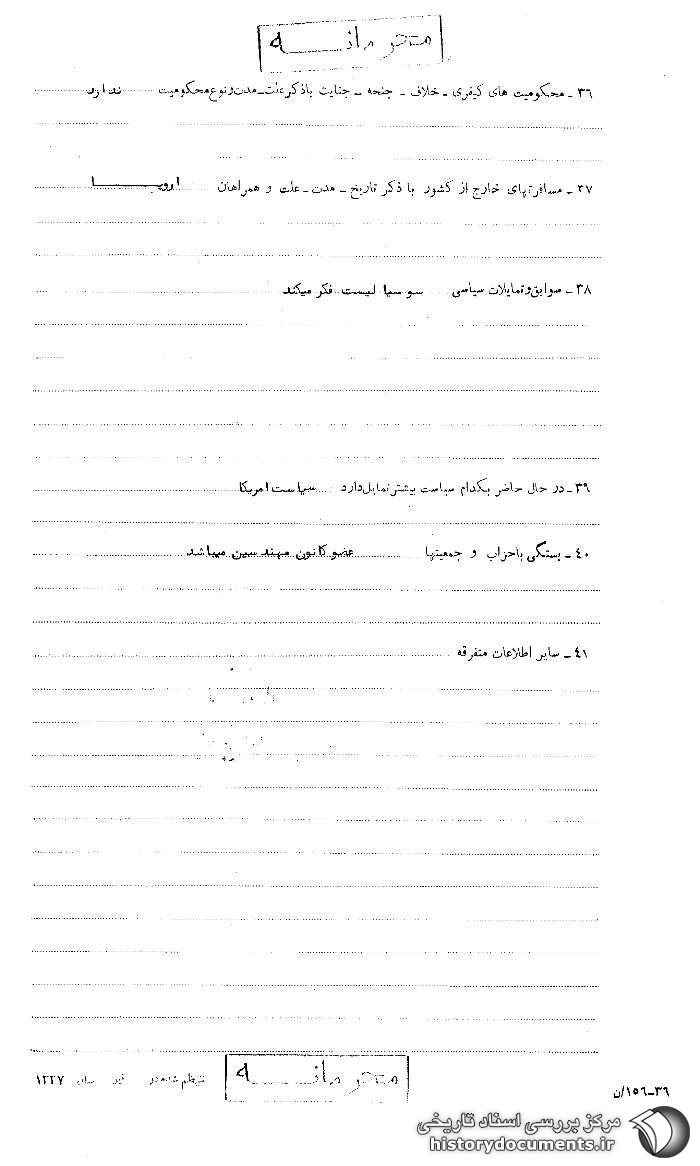 محرمانه
۳۶ - محکومیت های کیفری - خلاف - جنحه - جنایت باذکر علت - مدت و نوع محکومیت ندارد
۳۷ - مسافرتهای خارج از کشور با ذکر تاریخ - مدت - علت و همراهان اروپا
۳۸ - سوابق و تمایلات سیاسی سوسیالیست فکر میکند
۳۹ - در حال حاضر بکدام سیاست بیشتر تمایل دارد سیاست امریکا
۴۰ - بستگی باحزاب و جمعیتها عضو کانون مهندسین میباشد
۴۱ - سایر اطلاعات متفرقه
محرمانه
تنظیم شده در سال ۱۳۳۷
۳۶-۱۵۶/ن
مرکز بررسی اسناد تاریخی
historydocuments.ir